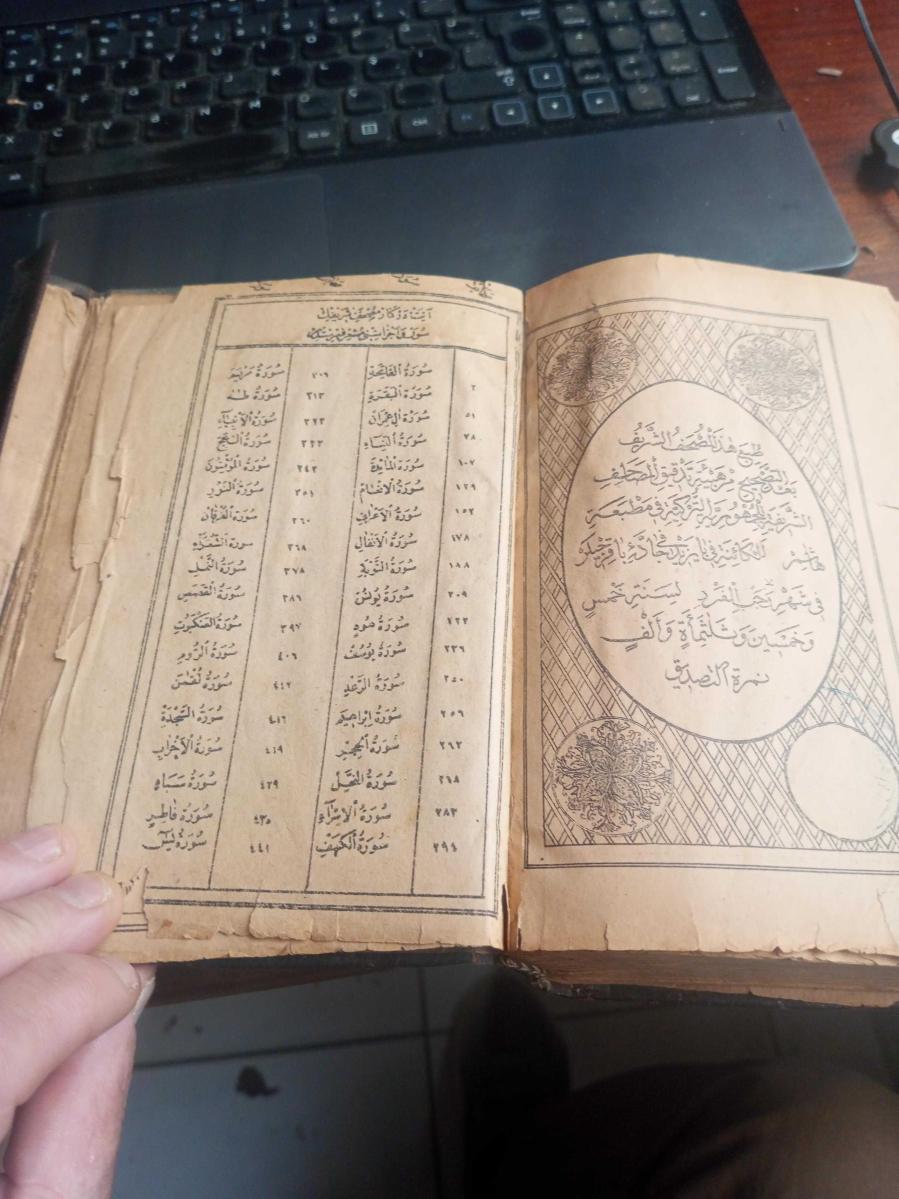 طبع هذا المصحف الشريف
بعد التصحيح من هيئة تدقيق المصاحف
الشريفة بالجمهورية التركية في مطبعة
الكائنة في بايزيد في جادة باقرجيلر
في شهر رجب الفرد لسنة خمس
وخمسين وثلثمائة وألف
نمرة التصديق
مصحف شريفك
سورة الفاتحة سورة مريم
٢ سورة البقرة ٣١٣ سورة طه
٥١ سورة ال عمران ٣٢٣ سورة الانبياء
٧٨ سورة النساء ٣٣٣ سورة الحج
١٠٧ سورة المائدة ٣٤٣ سورة المؤمنون
١٢٩ سورة الانعام ٣٥١ سورة النور
١٥٢ سورة الاعراف ٣٦٠ سورة الفرقان
١٧٨ سورة الانفال ٣٦٨ سورة الشعراء
١٨٨ سورة التوبة ٣٧٨ سورة النمل
٢٠٩ سورة يونس ٣٨٦ سورة القصص
٢٢٣ سورة هود ٣٩٧ سورة العنكبوت
٢٣٦ سورة يوسف ٤٠٦ سورة الروم
٢٥٠ سورة الرعد ٤١٢ سورة لقمن
٢٥٦ سورة ابراهيم ٤١٦ سورة السجدة
٢٦٢ سورة الحجر ٤١٩ سورة الاحزاب
٢٦٨ سورة النحل ٤٢٩ سورة سباء
٢٨٣ سورة الاسراء ٤٣٥ سورة فاطر
٢٩٤ سورة الكهف ٤٤١ سورة يس